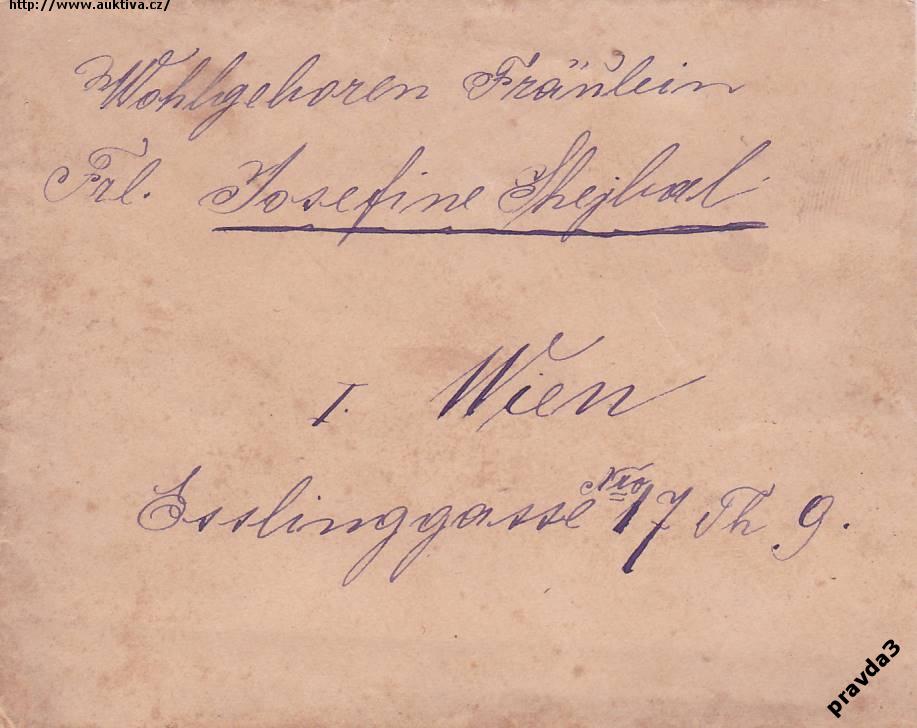 http://www.auktiva.cz/
Wohlgeboren Fräulein
Frl. Josefine Shejbal
I. Wien
Esslinggasse Nro 17 Th 9.
pravda3